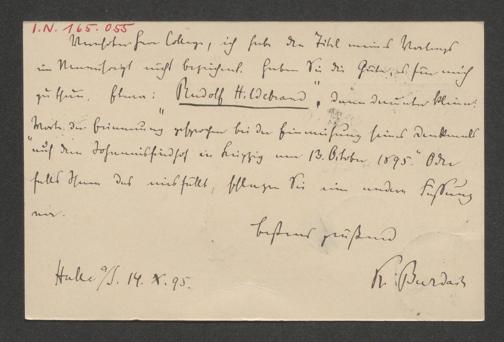 I.N. 165.055
Verehrter Herr College, ich habe den Titel meines Vortrags
im Manuscript nicht bezeichnet. Haben Sie die Güte, es für mich
zu thun. Etwa: „Rudolf Hildebrand", dann darunter kleiner:
Worte der Erinnerung gesprochen bei der Einweihung seines Denkmals
auf dem Johannisfriedhof in Leipzig am 13. Oktober 1895." Oder
falls Ihnen das misfällt, schlagen Sie eine andere Fassung
vor.
bestens grüßend
Halle a/S. 14. X. 95.
K. Burdach